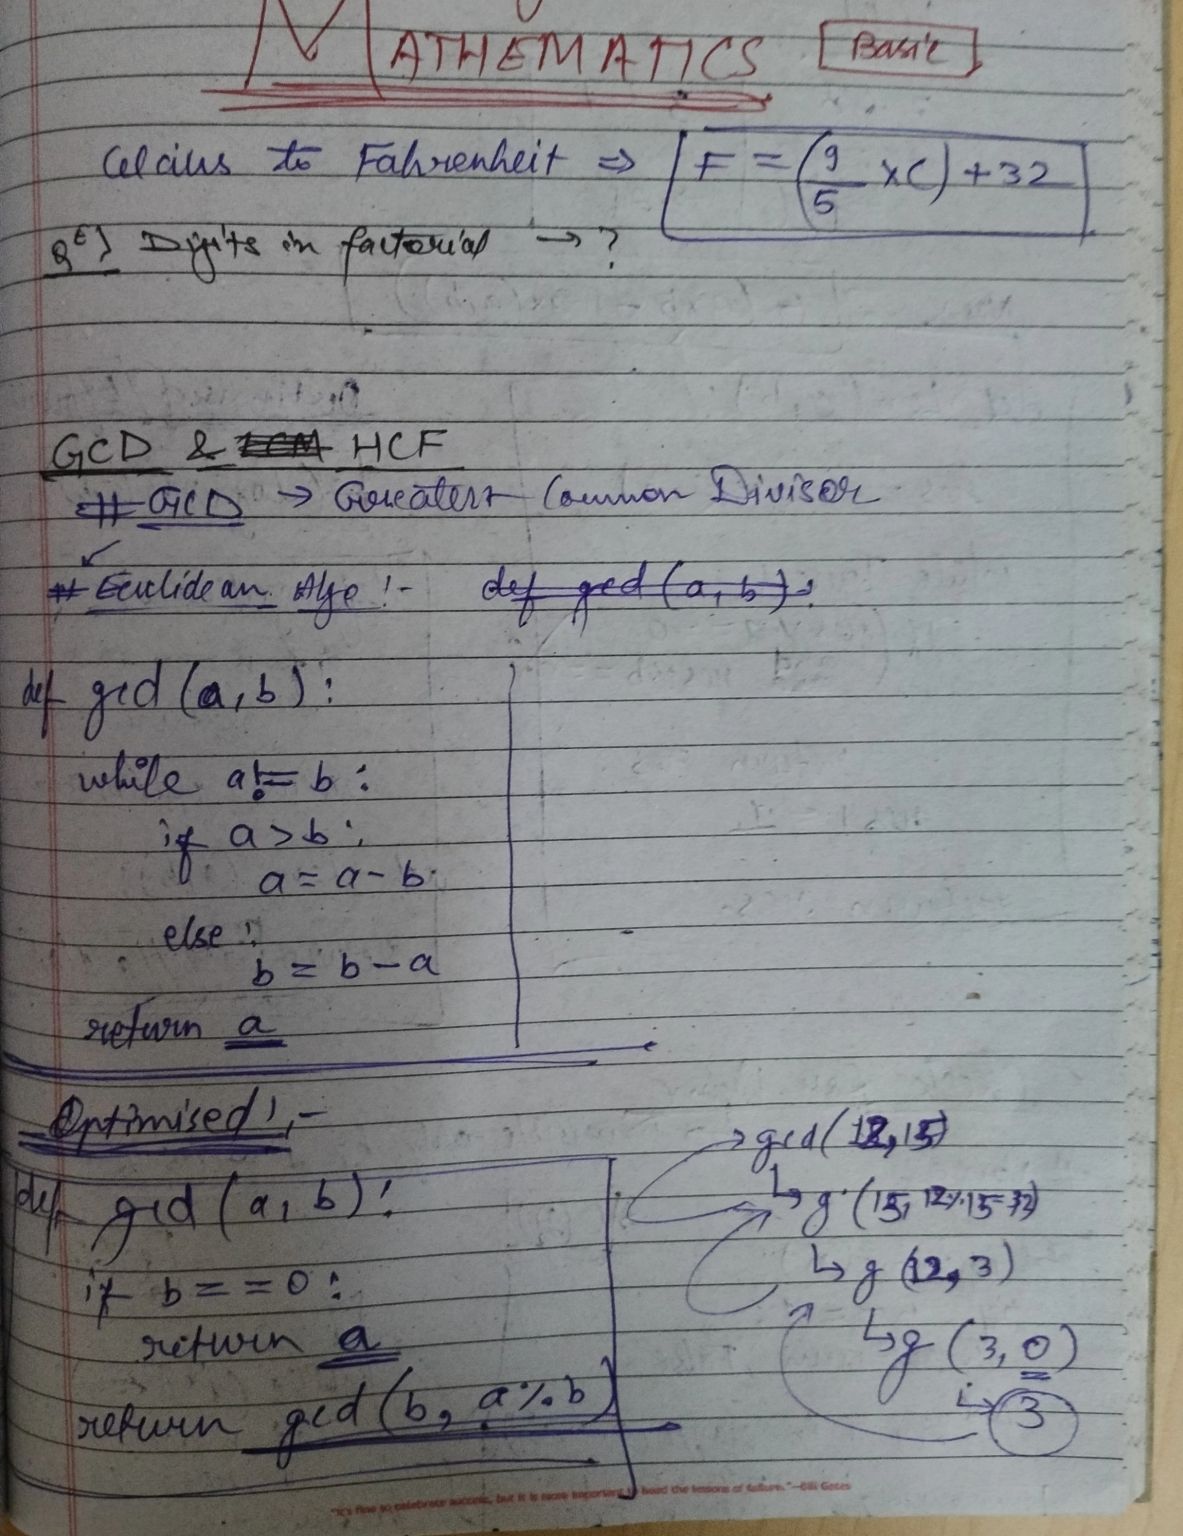 MATHEMATICS [Basic]
Celcius to Fahrenheit ⇒ F = (9/5 × C) + 32
Digits in factorial → ?
GCD & HCF
# GCD → Greatest Common Divisor
# Euclidean Algo :- def gcd (a, b) :
def gcd (a, b) :
while a != b :
if a > b :
a = a - b
else :
b = b - a
return a
Optimised :-
def gcd (a, b) :
if b == 0 :
return a
return gcd (b, a % b)
→ gcd (12, 15)
↳ g (15, 12%15=12)
↳ g (12, 3)
↳ g (3, 0)
↳ 3
"It's fine to celebrate success, but it is more important to heed the lessons of failure." —Bill Gates